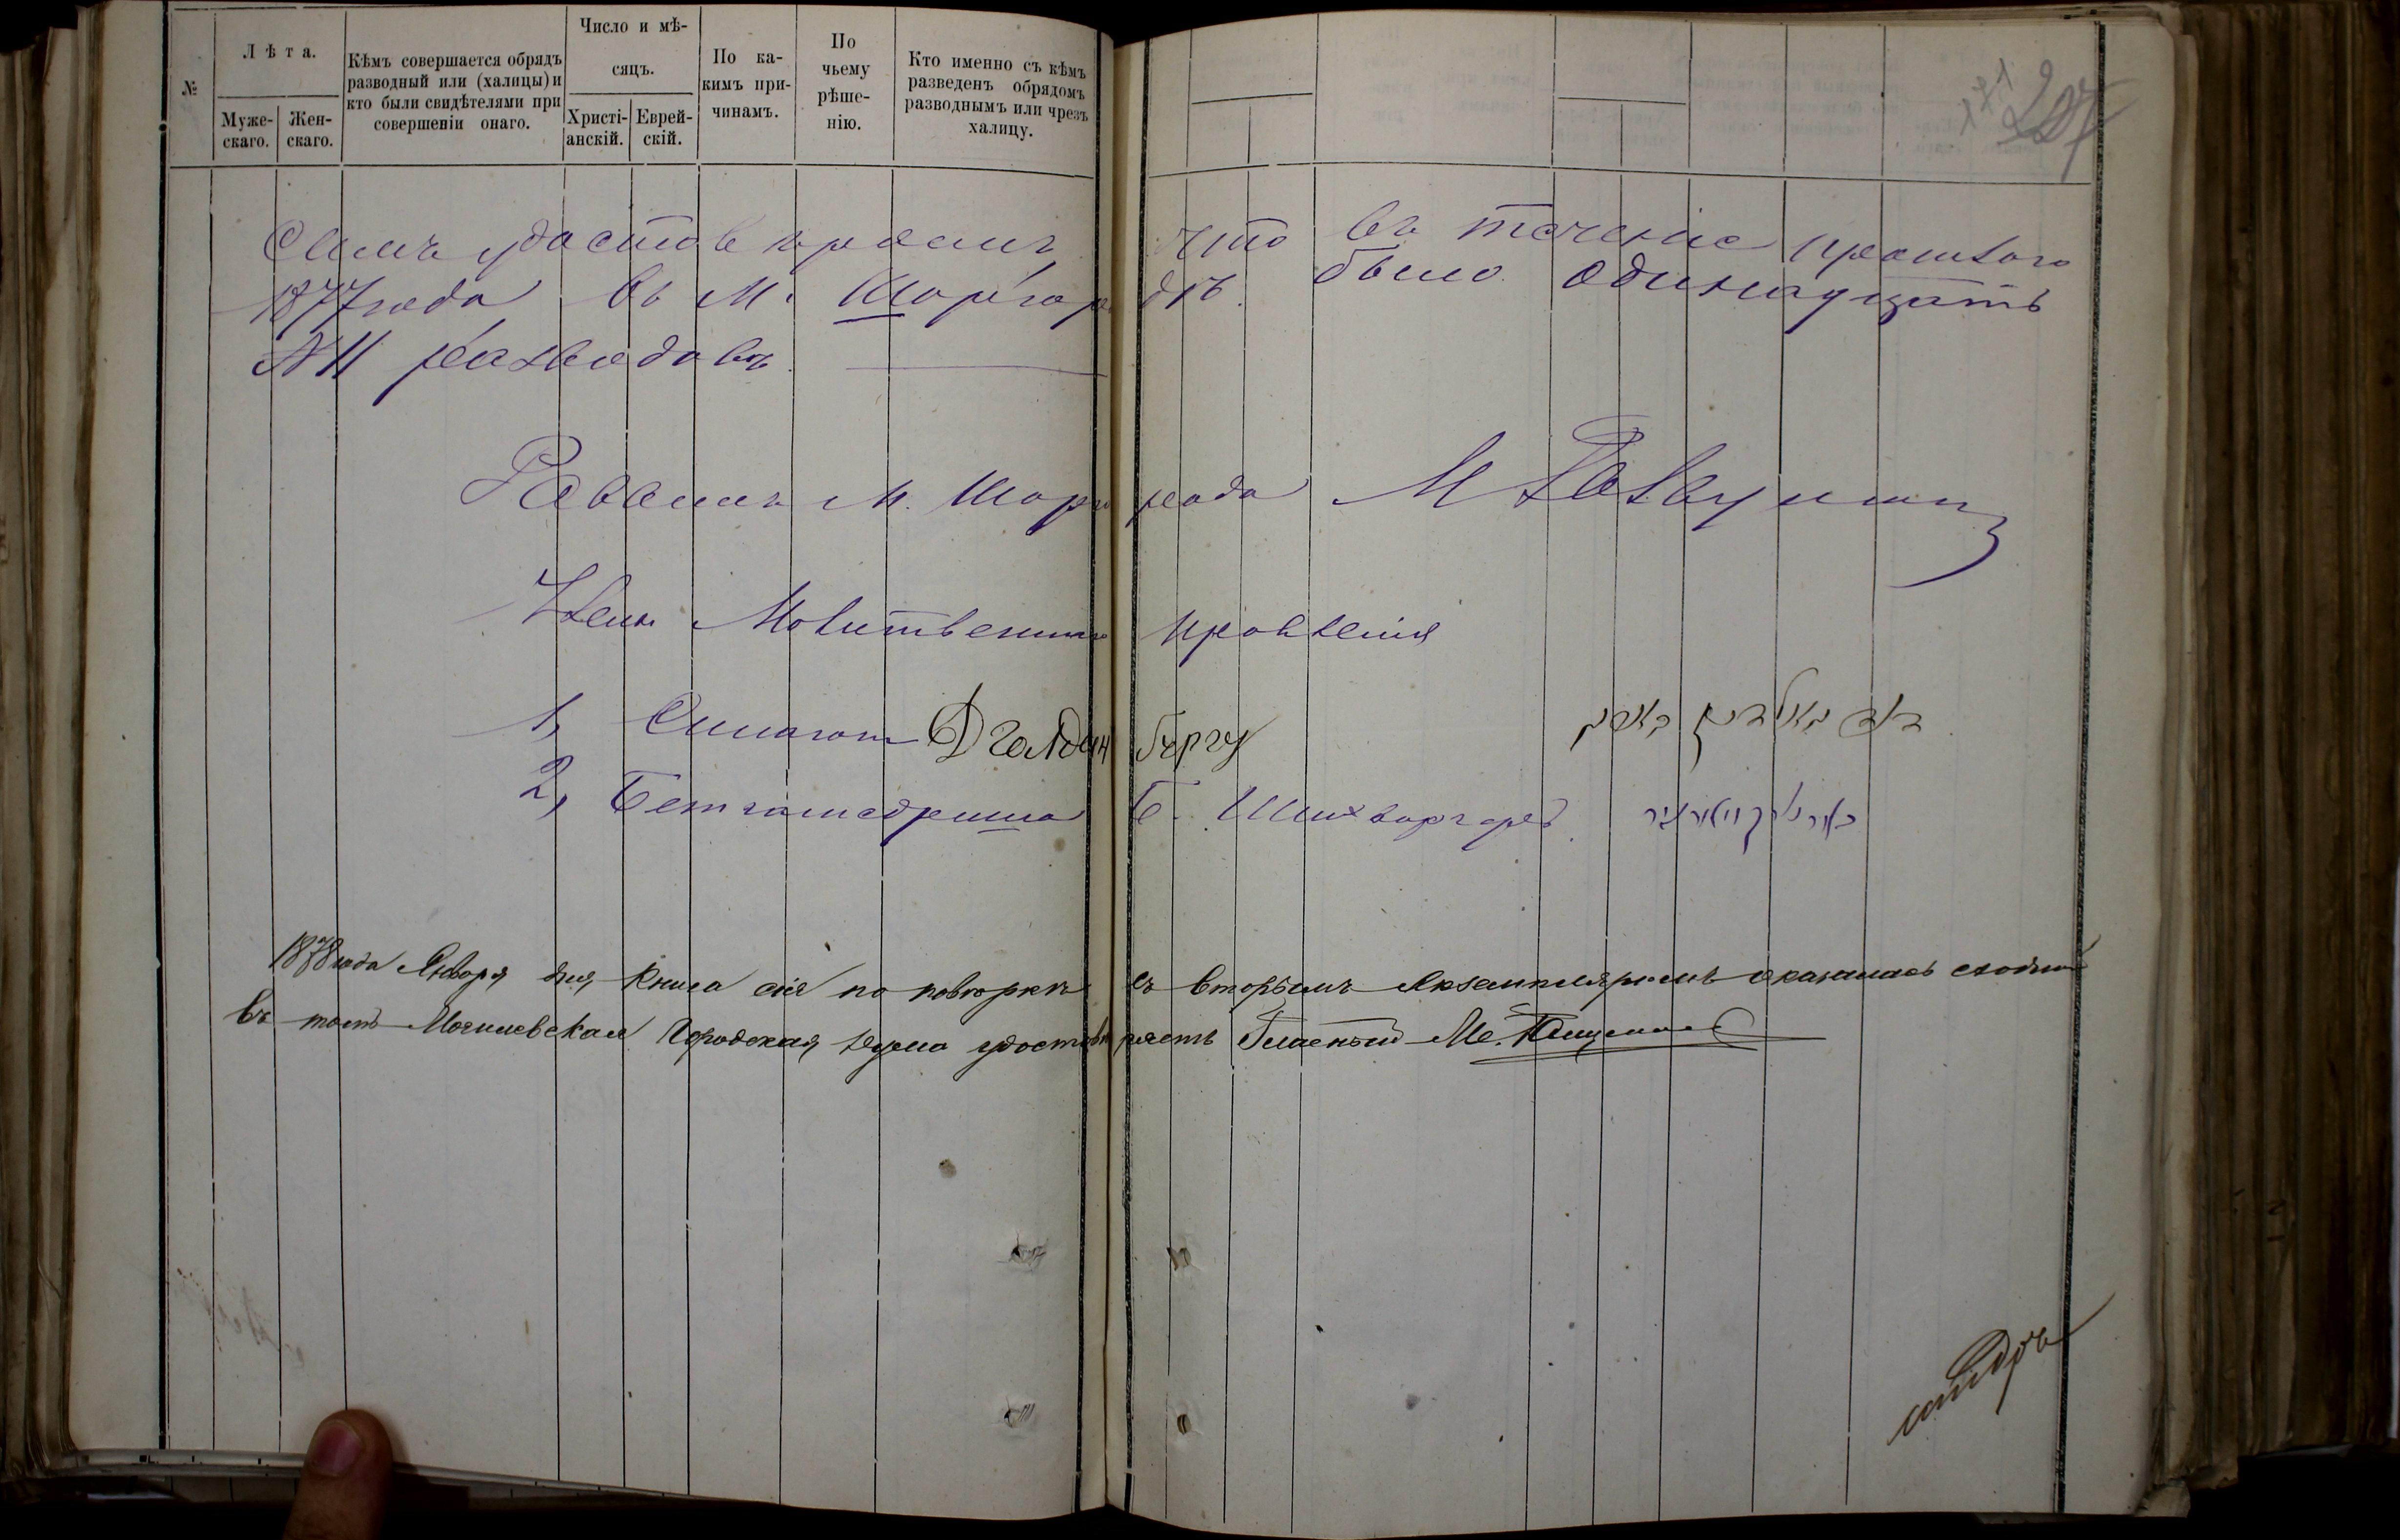 №
Лѣта.
Муже-
скаго.
Жен-
скаго.
Кѣмъ совершается обрядъ
разводный или (халицы) и
кто были свидѣтелями при
совершеніи онаго.
Число и мѣ-
сяцъ.
Христі-
анскій.
Еврей-
скій.
По ка-
кимъ при-
чинамъ.
По
чьему
рѣше-
нію.
Кто именно съ кѣмъ
разведенъ обрядомъ
разводнымъ или чрезъ
халицу.
171
207
Симъ удостовѣряемъ что въ теченіе прошлаго
1877 года въ м. Шаргородѣ было одинадцать
№ 11 разводовъ
Раввинъ м. Шаргорода М
Член Молитвенного правления
1, Синагоги Д Галдинбергу
2, Бетгамедриша Б.
1878 года Января дня Книга сія по повѣркѣ съ вторымъ экземпляромъ оказалась сходна
въ томъ Могилевская Городская Дума удостовѣряетъ Гласный М.